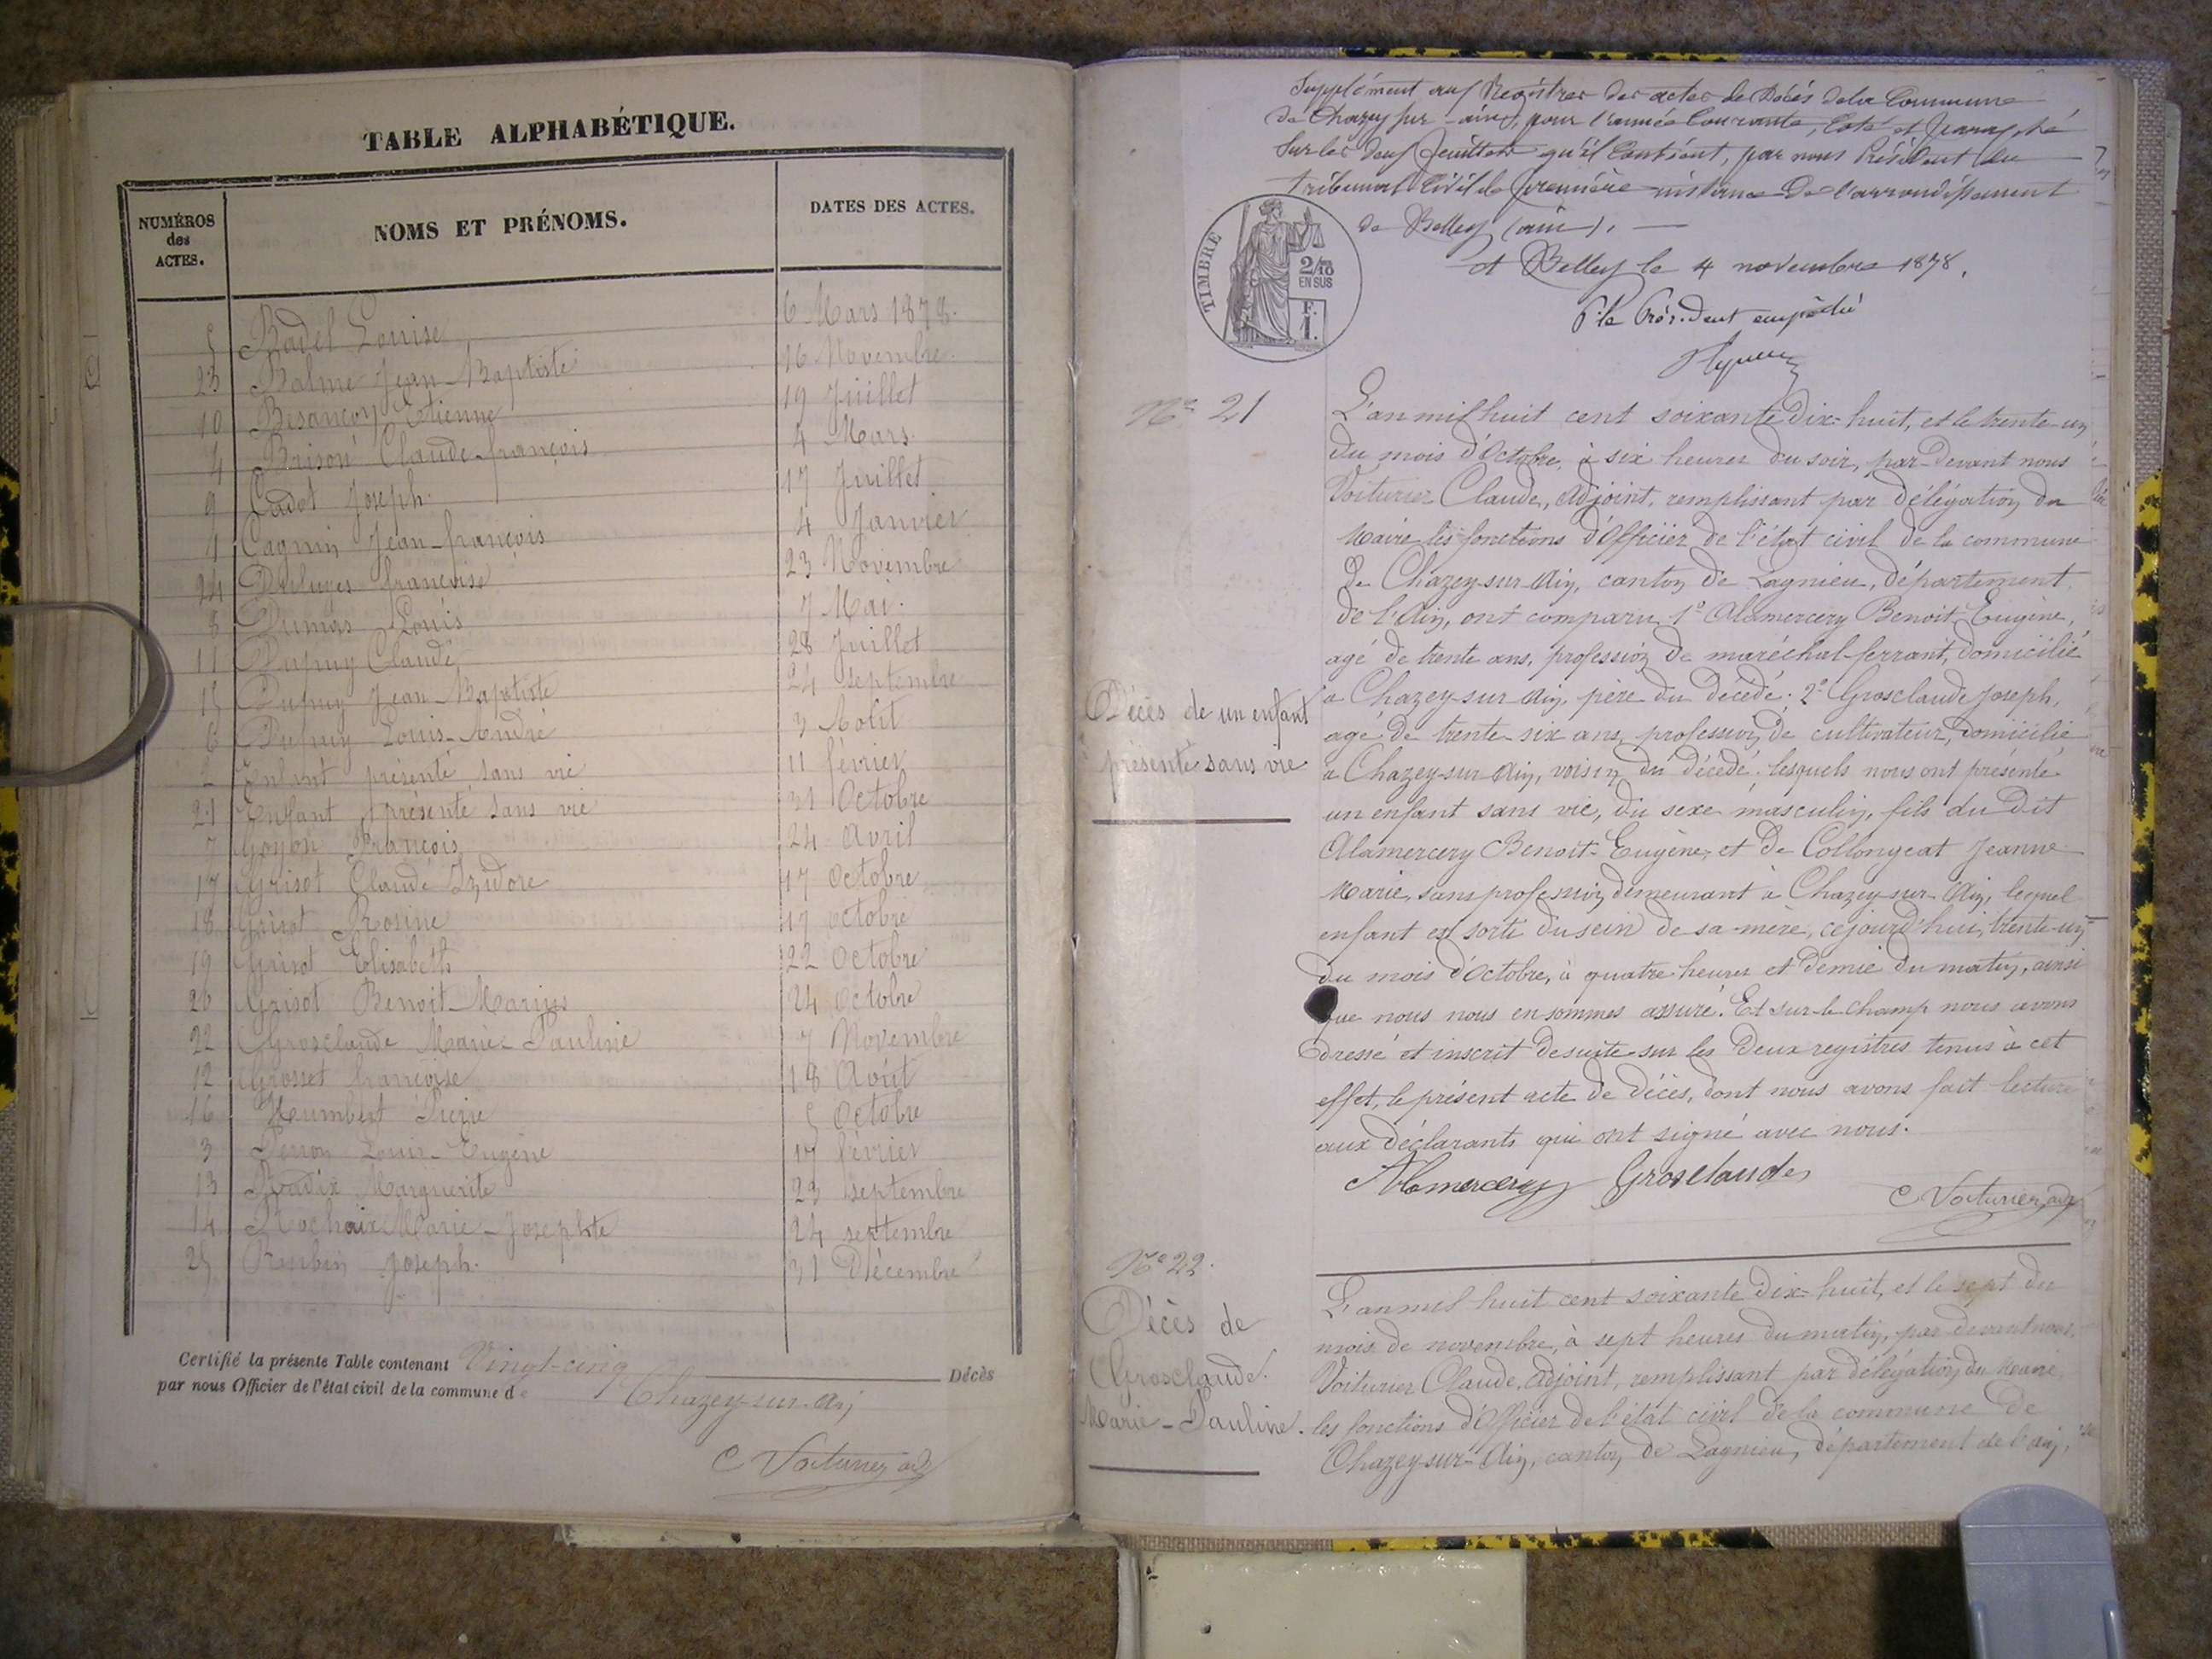 TABLE ALPHABÉTIQUE.
NUMÉROS des ACTES. NOMS ET PRÉNOMS. DATES DES ACTES.
5 Badel Louise 6 Mars 1878.
23 Balme Jean-Baptiste 16 Novembre.
10 Besançon Etienne 19 Juillet
4 Brison Claude-françois 4 Mars.
9 Cadot Joseph. 17 Juillet
1 Cagnin Jean-françois 4 Janvier
24 françoise 23 Novembre
8 Dumas Louis 7 Mai.
11 Dupuy Claude 28 Juillet
15 Dupuy Jean-Baptiste 24 septembre
6 Dupuy Louis-André 3 Août
2 Enfant présenté sans vie 11 février
21 Enfant présenté sans vie 31 Octobre
7 Goyon François 24 Avril
17 Grisot Claude Izidore 17 Octobre
18 Grisot Rosine 17 octobre
19 Grisot Elisabeth 22 Octobre
20 Grisot Benoit-Marius 24 Octobre
22 Grosclaude Marie-Pauline 7 Novembre
12 Grosset françoise 18 Août
16 Humbert Pierre 5 Octobre
3 Perron Louis-Eugène 17 février
13 Radix Marguerite 23 septembre
14 Rochaix Marie-Josephte 24 septembre
25 Joseph. 31 Décembre
Certifié la présente Table contenant Vingt-cinq Décès
par nous Officier de l'état civil de la commune de Chazey-sur-Ain
C Voiturier adj
Supplément aux Registres des actes de Décès de la Commune
de Chazey sur-ain, pour l'année Courante, Coté et Paraphé
Sur les deux feuillets qu'il Contient, par nous Président du
Tribunal Civil de première instance De l'arrondissement
de Belley (ain). —
A Belley le 4 novembre 1878.
P. le Président empêché
TIMBRE
2/10 EN SUS
F. 1.
No 21
L'an mil huit cent soixante Dix-huit, et le trente-un
du mois d'Octobre, à six heures du soir, par-Devant nous
Voiturier Claude, Adjoint, remplissant par délégation du
Maire les fonctions d'Officier de l'état civil de la commune
de Chazey-sur-Ain, canton de Lagnieu, département
de l'Ain, ont comparu 1º Alamercery Benoit-Eugène,
agé de trente ans, profession de maréchal-ferrant, domicilié
à Chazey-sur-Ain, père du décédé; 2º Grosclaude Joseph,
Décès de un enfant
présenté sans vie
agé de trente-six ans, profession de cultivateur, domicilié
à Chazey-sur-Ain, voisin du décédé; lesquels nous ont présenté
un enfant sans vie, du sexe masculin, fils du Dit
Alamercery Benoit-Eugène, et de Collongeat Jeanne
Marie, sans profession, demeurant à Chazey-sur-Ain, lequel
enfant est sorti du sein de sa mère, cejourd'hui, trente-un
du mois d'Octobre, à quatre heures et demie du matin, ainsi
que nous nous en sommes assuré. Et sur-le-champ nous avons
dressé et inscrit desuite sur les Deux registres tenus à cet
effet, le présent acte de décès, dont nous avons fait lecture
aux déclarants qui ont signé avec nous.
Alamercery Grosclaude C Voiturier, adj
No 22.
Décès de
Grosclaude.
Marie-Pauline.
L'an mil huit cent soixante Dix-huit, et le sept du
mois de novembre, à sept heures du matin, par devant nous,
Voiturier Claude, Adjoint, remplissant par délégation du Maire
les fonctions d'Officier de l'état civil de la commune de
Chazey-sur-Ain, canton de Lagnieu, département de l'Ain,